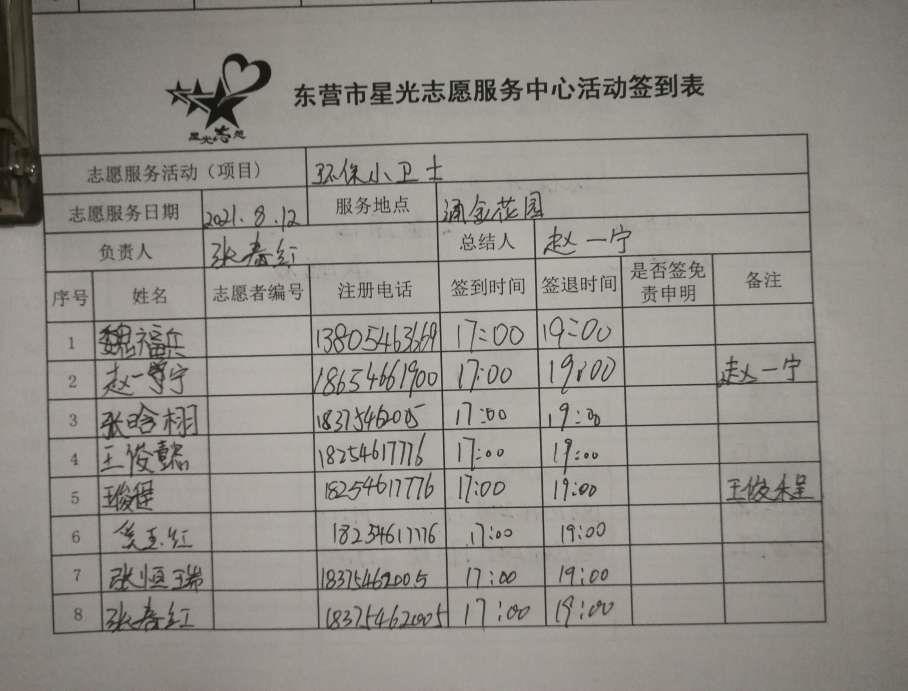 东营市星光志愿服务中心活动签到表
星光志愿
志愿服务活动（项目） 环保小卫士
志愿服务日期 2021.8.12 服务地点 涌金花园
负责人 张春红 总结人 赵一宁
序号 姓名 志愿者编号 注册电话 签到时间 签退时间 是否签免责申明 备注
1 魏福兵 13805463669 17:00 19:00
2 赵一宁 18654661900 17:00 19:00 赵一宁
3 张晗栩 18375462005 17:00 19:00
4 王俊懿 18254617776 17:00 19:00
5 王俊程 18254617776 17:00 19:00 王俊程
6 红 18254617776 17:00 19:00
7 张恒瑞 18375462005 17:00 19:00
8 张春红 18375462005 17:00 19:00